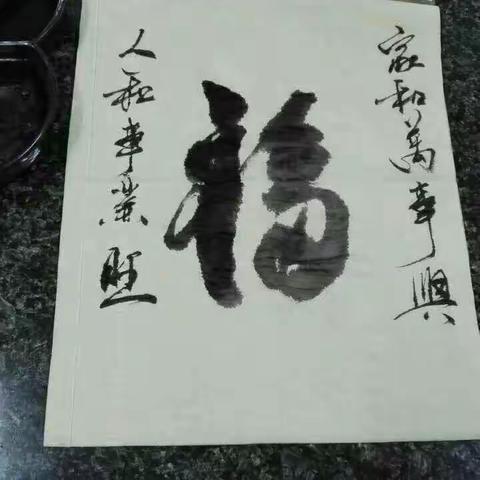 家和萬事興
福
人和事業旺